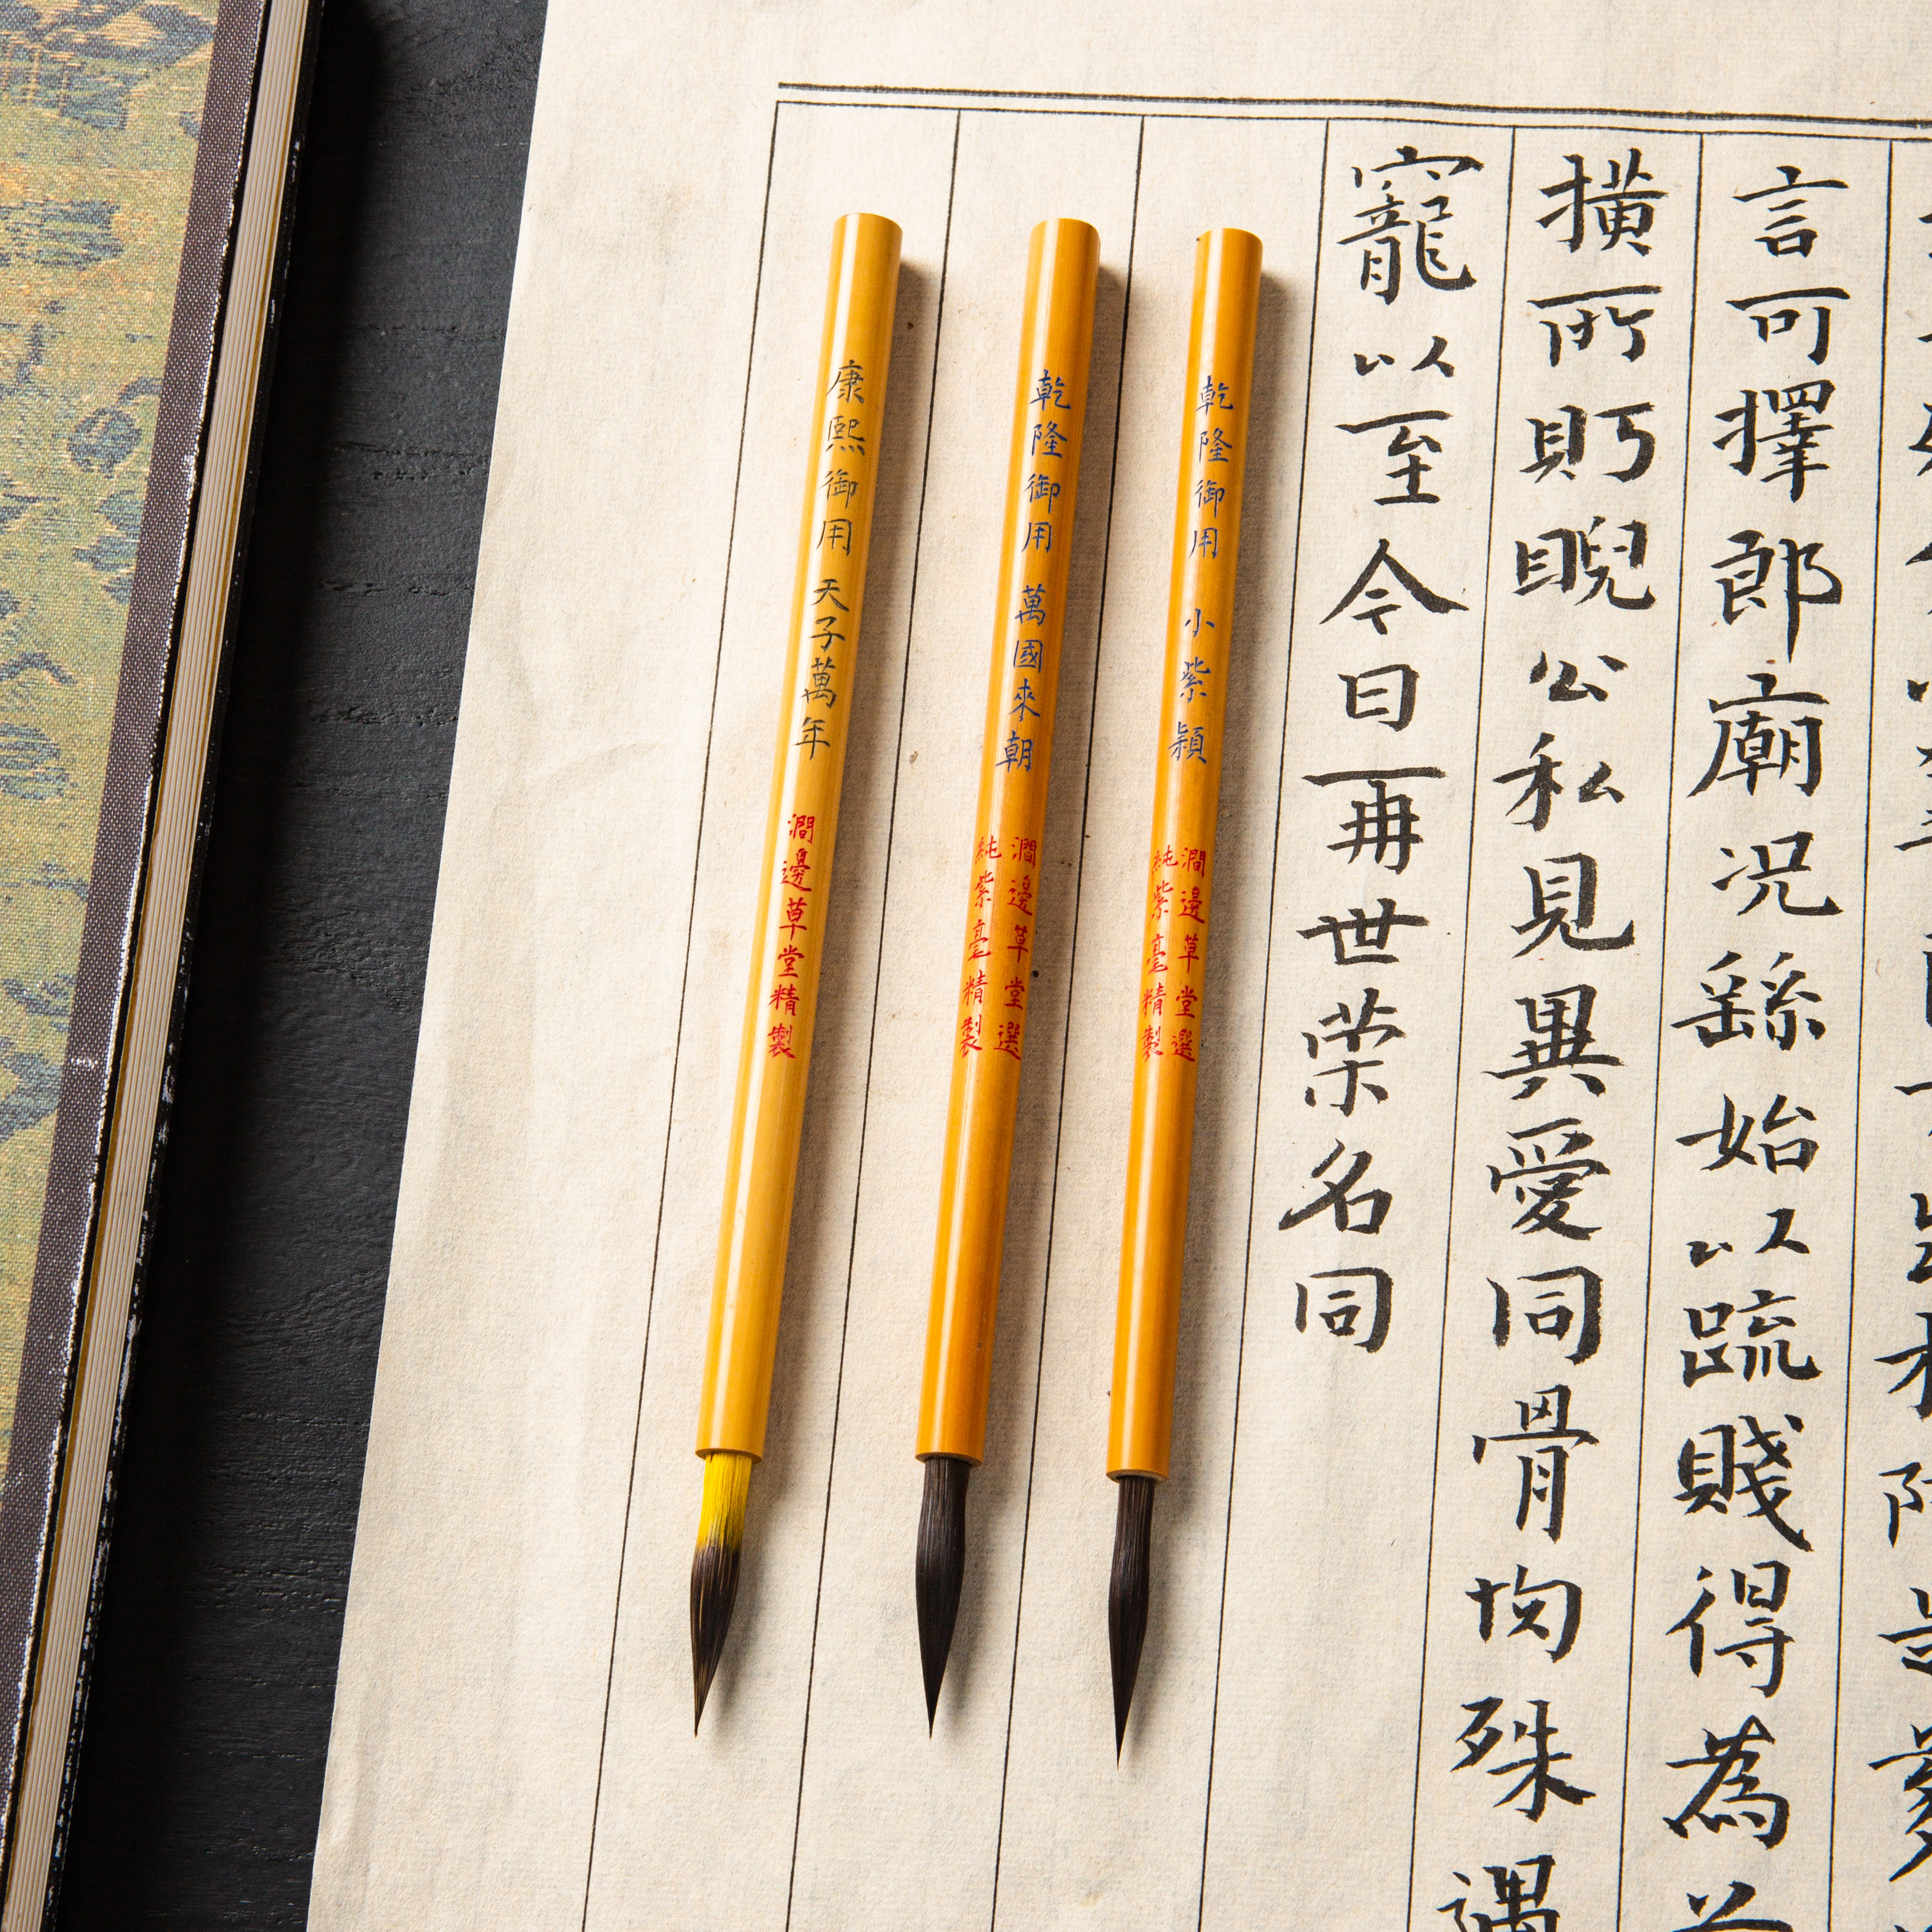 言可擇郎廟况繇始以䟽賤得為
横所眄睨公私見異愛同骨肉殊遇
寵以至今日再世荣名同
乾隆御用 小紫穎
澗邊草堂選
純紫毫精製
乾隆御用 萬國來朝
澗邊草堂選
純紫毫精製
康熙御用 天子萬年
澗邊草堂精製